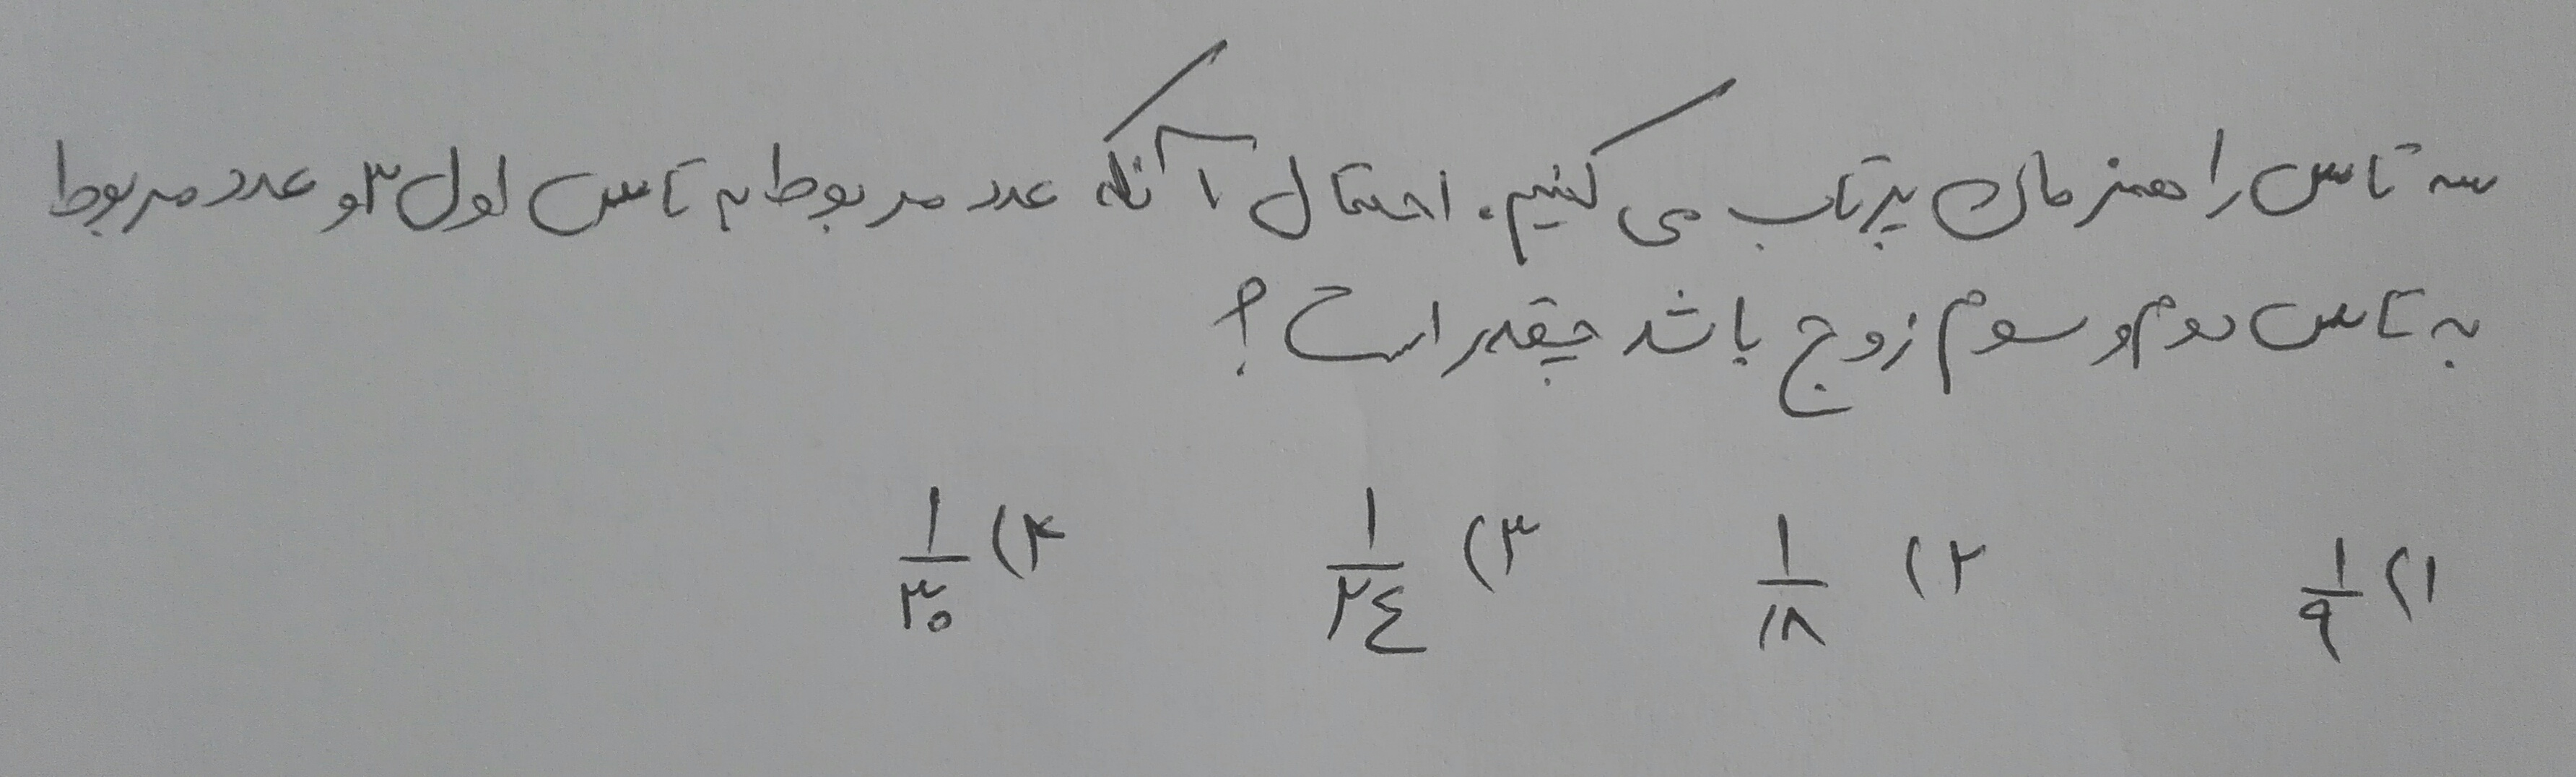 سه تاس را همزمان پرتاب می کنیم. احتمال آنکه عدد مربوط به تاس اول ۳ و عدد مربوط
به تاس دوم و سوم زوج باشد چقدر است؟
۱) ۱/۹ ۲) ۱/۱۸ ۳) ۱/۲٤ ۴) ۱/۳۰